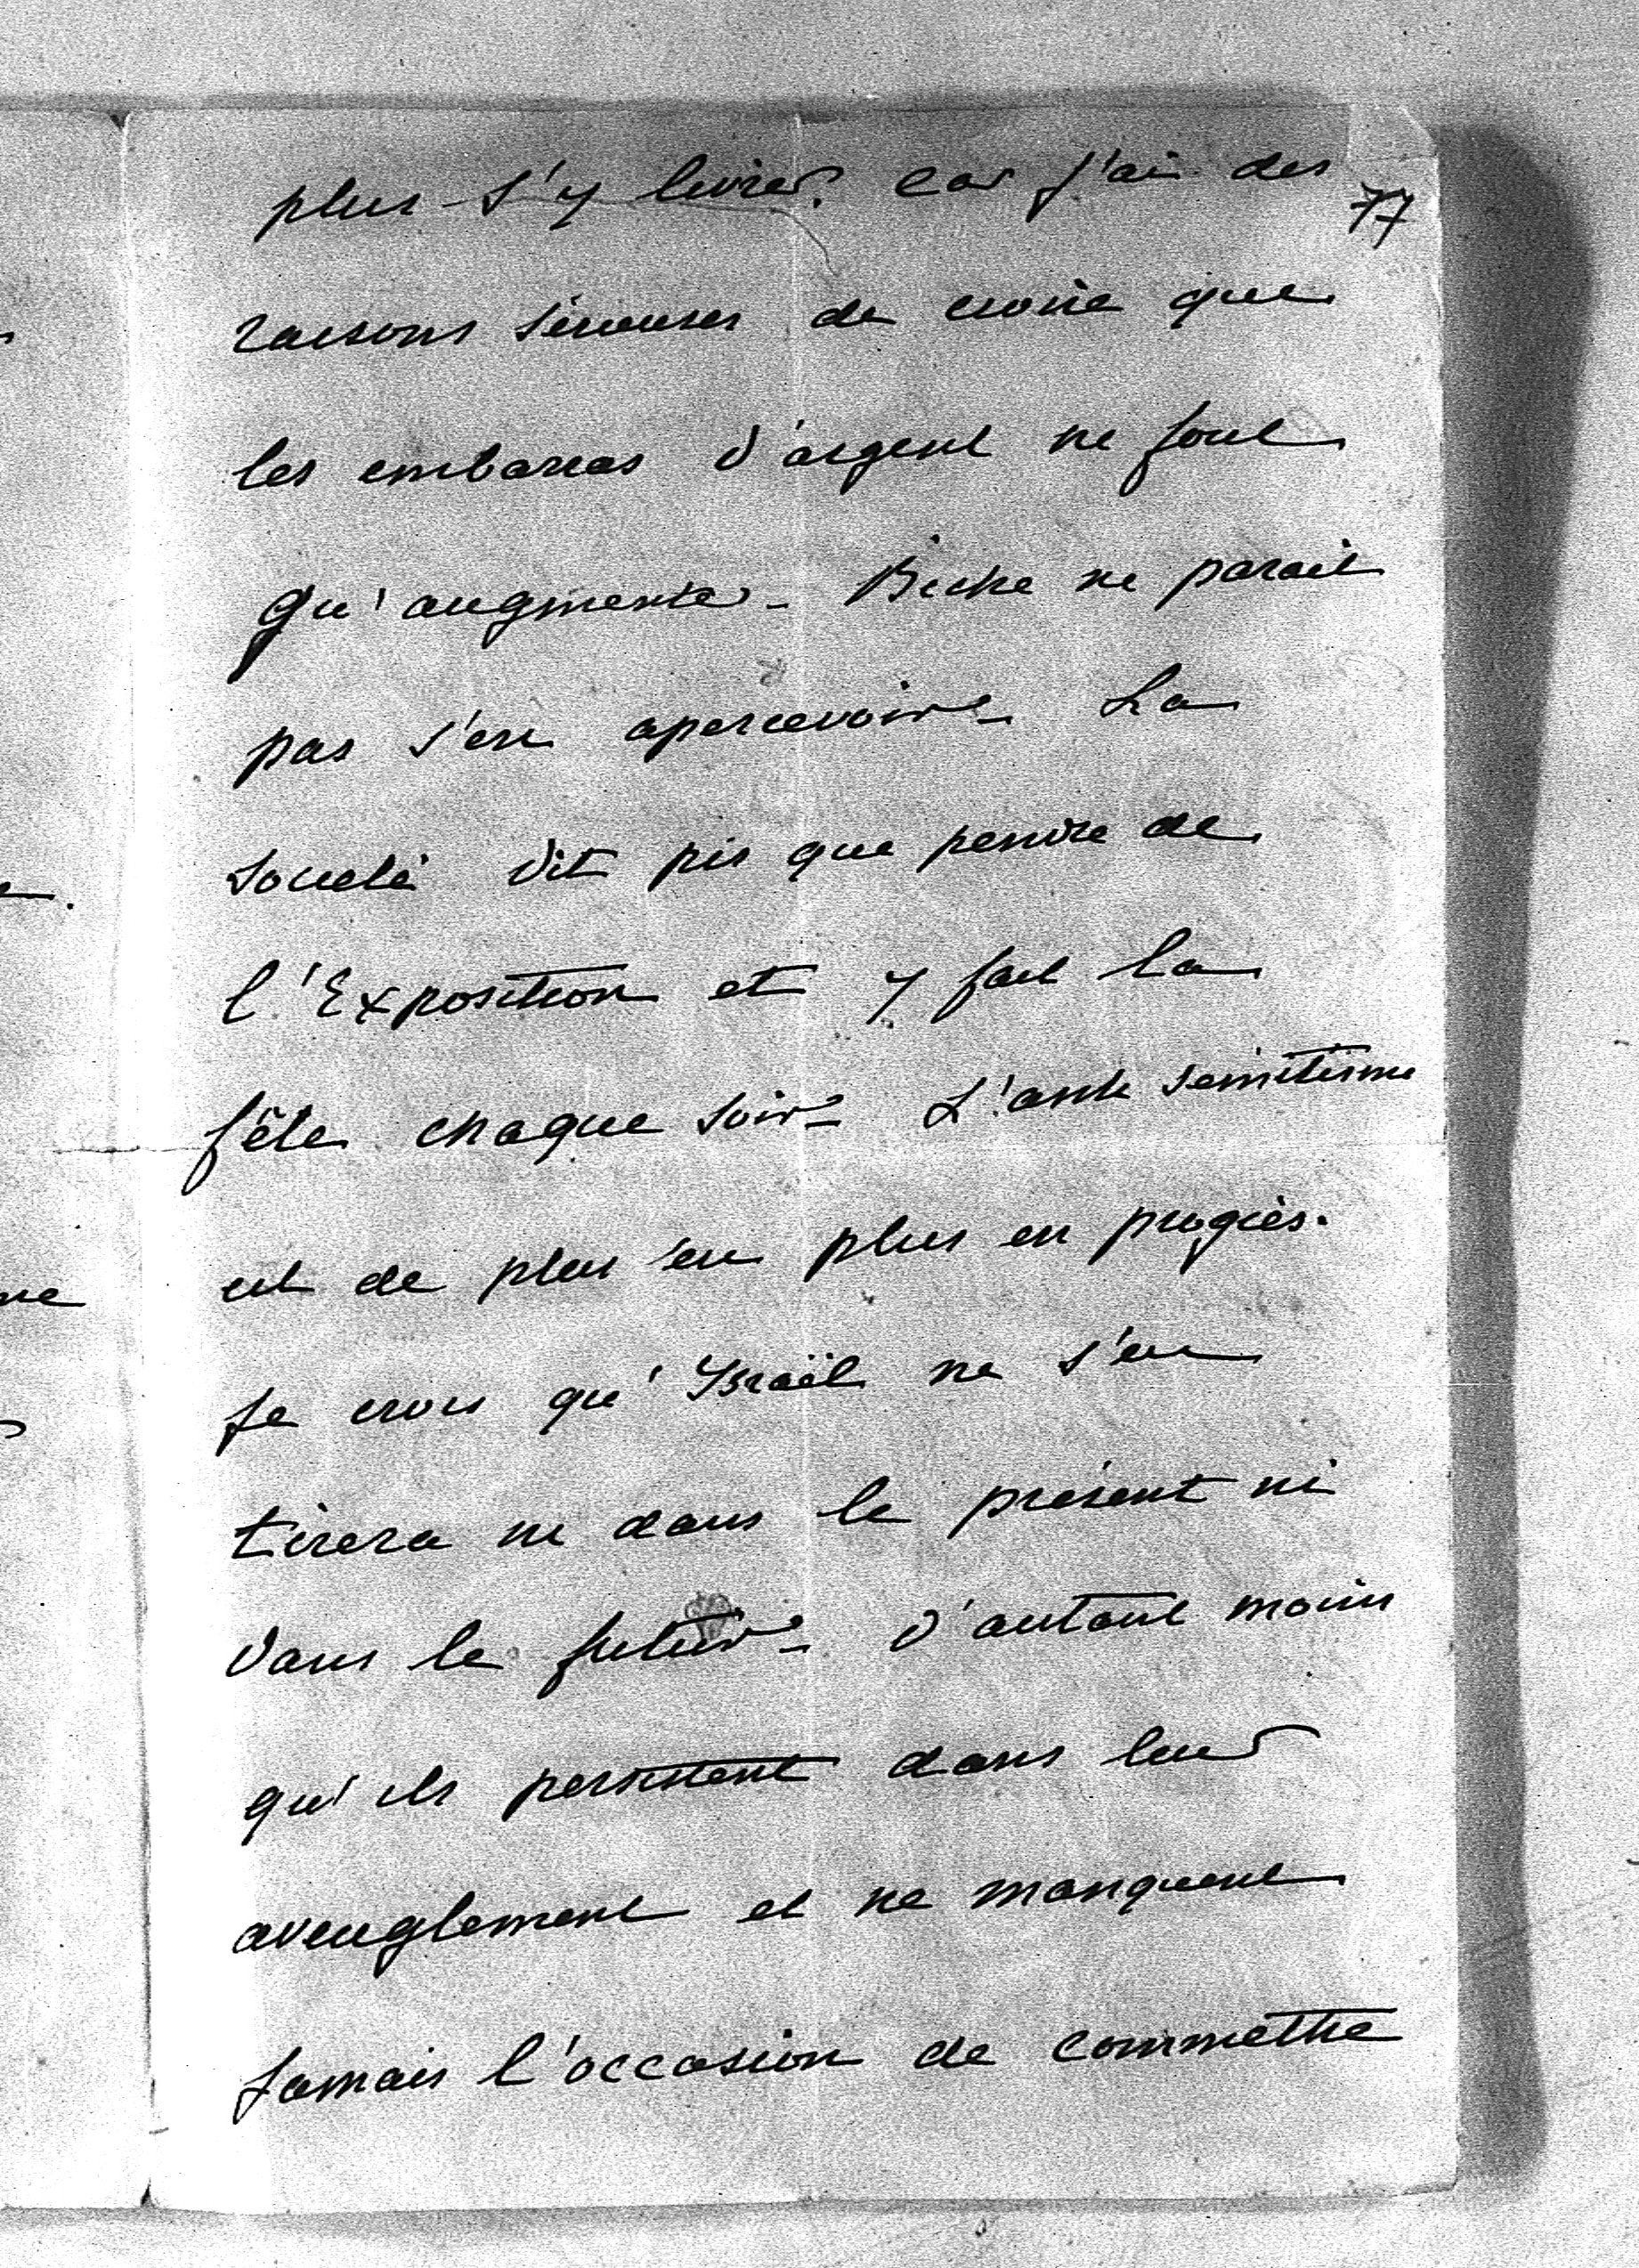 plus s'y livrer. car j'ai des
77
raisons sérieuses de croire que
les embarras d'argent ne font
qu'augmenter. Biche ne parait
pas s'en apercevoir. La
société dit pis que pendre de
l'Exposition et y fait la
fête chaque soir. L'anti semitisme
est de plus en plus en progrès.
Je crois qu'Israël ne s'en
tirera ni dans le présent ni
dans le futur. d'autant moins
qu'ils persistent dans leur
aveuglement et ne manquent
jamais l'occasion de commettre